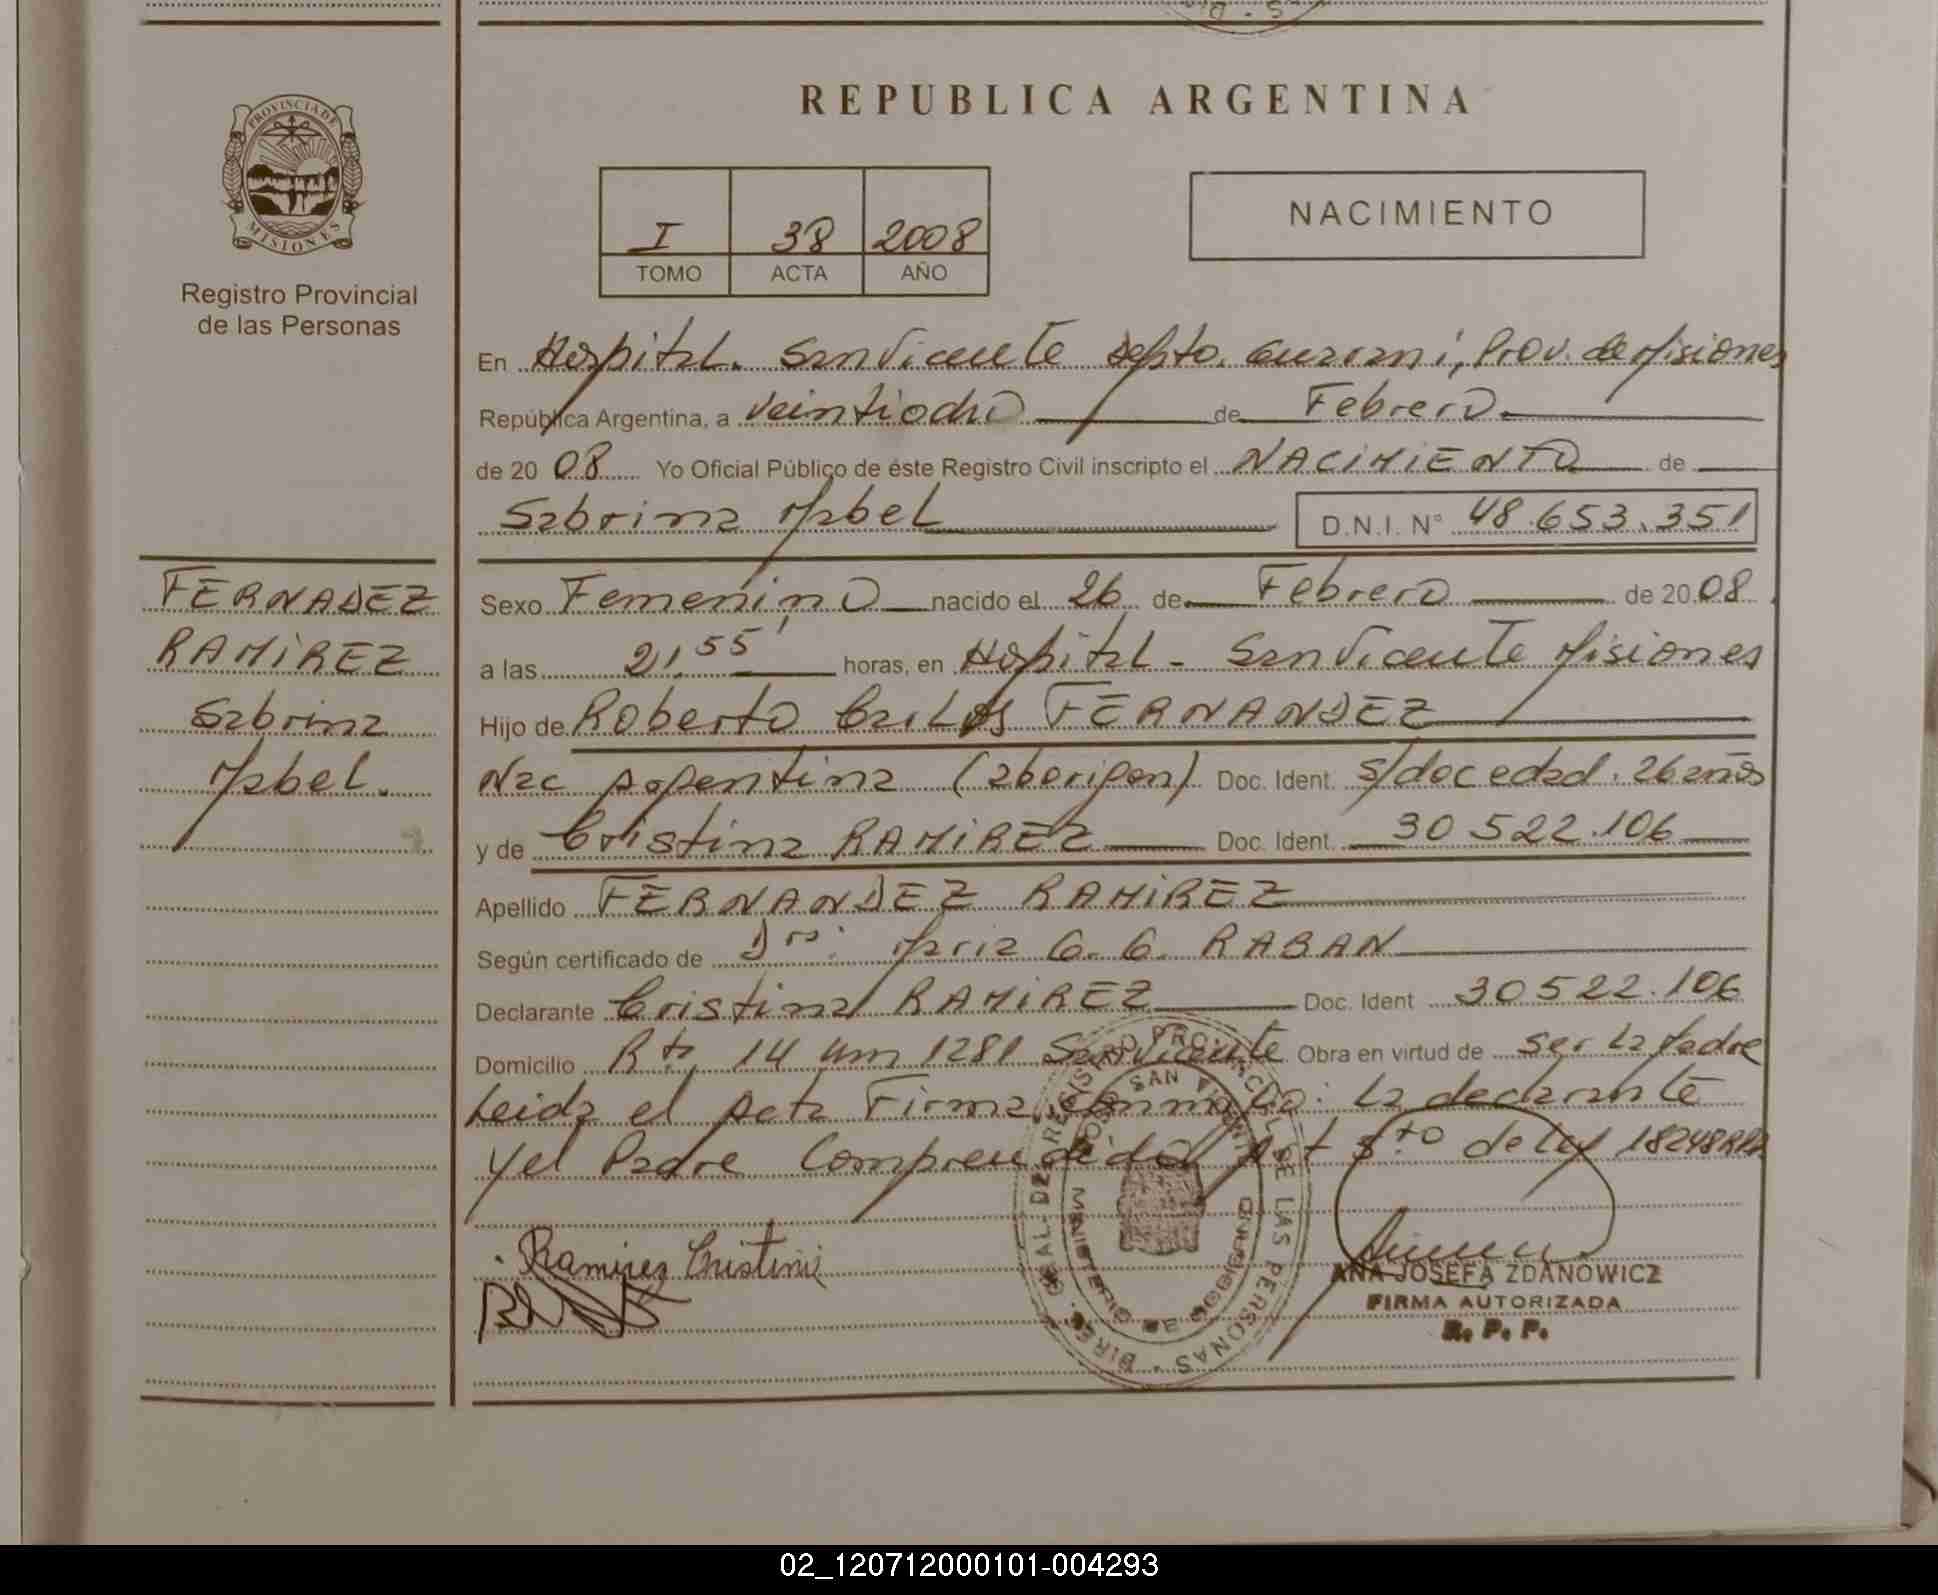 REPUBLICA ARGENTINA
PROVINCIA DE MISIONES
Registro Provincial
de las Personas
I 38 2008
TOMO ACTA AÑO
NACIMIENTO
En Hospital. San Vicente depto. Guarani, Prov. de Misiones
República Argentina, a veintiocho de Febrero.
de 20 08 Yo Oficial Público de éste Registro Civil inscripto el NACIMIENTO de
Sabrina Mabel D.N.I. N° 48.653.351
FERNADEZ
RAMIREZ
Sabrina
Mabel.
Sexo Femenino nacido el 26 de Febrero de 20 08
a las 21,55' horas, en Hospital - San Vicente Misiones
Hijo de Roberto Carlos FERNANDEZ
Nac Argentina (aborigen) Doc. Ident. s/doc edad. 26 años
y de Cristina RAMIREZ Doc. Ident. 30522.106
Apellido FERNANDEZ RAMIREZ
Según certificado de Dra: Maria G. G. RABAN
Declarante Cristina RAMIREZ Doc. Ident 30522.106
Domicilio Rta 14 Km 1281 San Vicente Obra en virtud de ser la Madre
Leida el Acta Firma Conmigo: La declarante
y el Padre Comprendida Art 5to de Ley 18248
Ramirez Cristina
DIRE. GRAL. DEL REGISTRO PROVINCIAL DE LAS PERSONAS
SAN VICENTE
MINISTERIO DE GOBIERNO
ANA JOSEFA ZDANOWICZ
FIRMA AUTORIZADA
R. P. P.
02_120712000101-004293